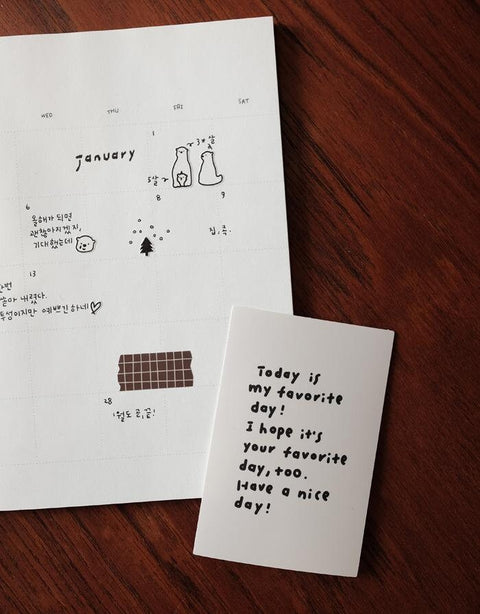 WED THU FRI SAT
1
january
3*살
5살
6 8 9
올해가 되면
괜찮아지겠지,
기대했는데
집,콕.
13
내렸다.
투성이지만 예쁘긴하네
28
1월도 곧,끝!
Today is
my favorite
day!
I hope it's
your favorite
day, too.
Have a nice
day!